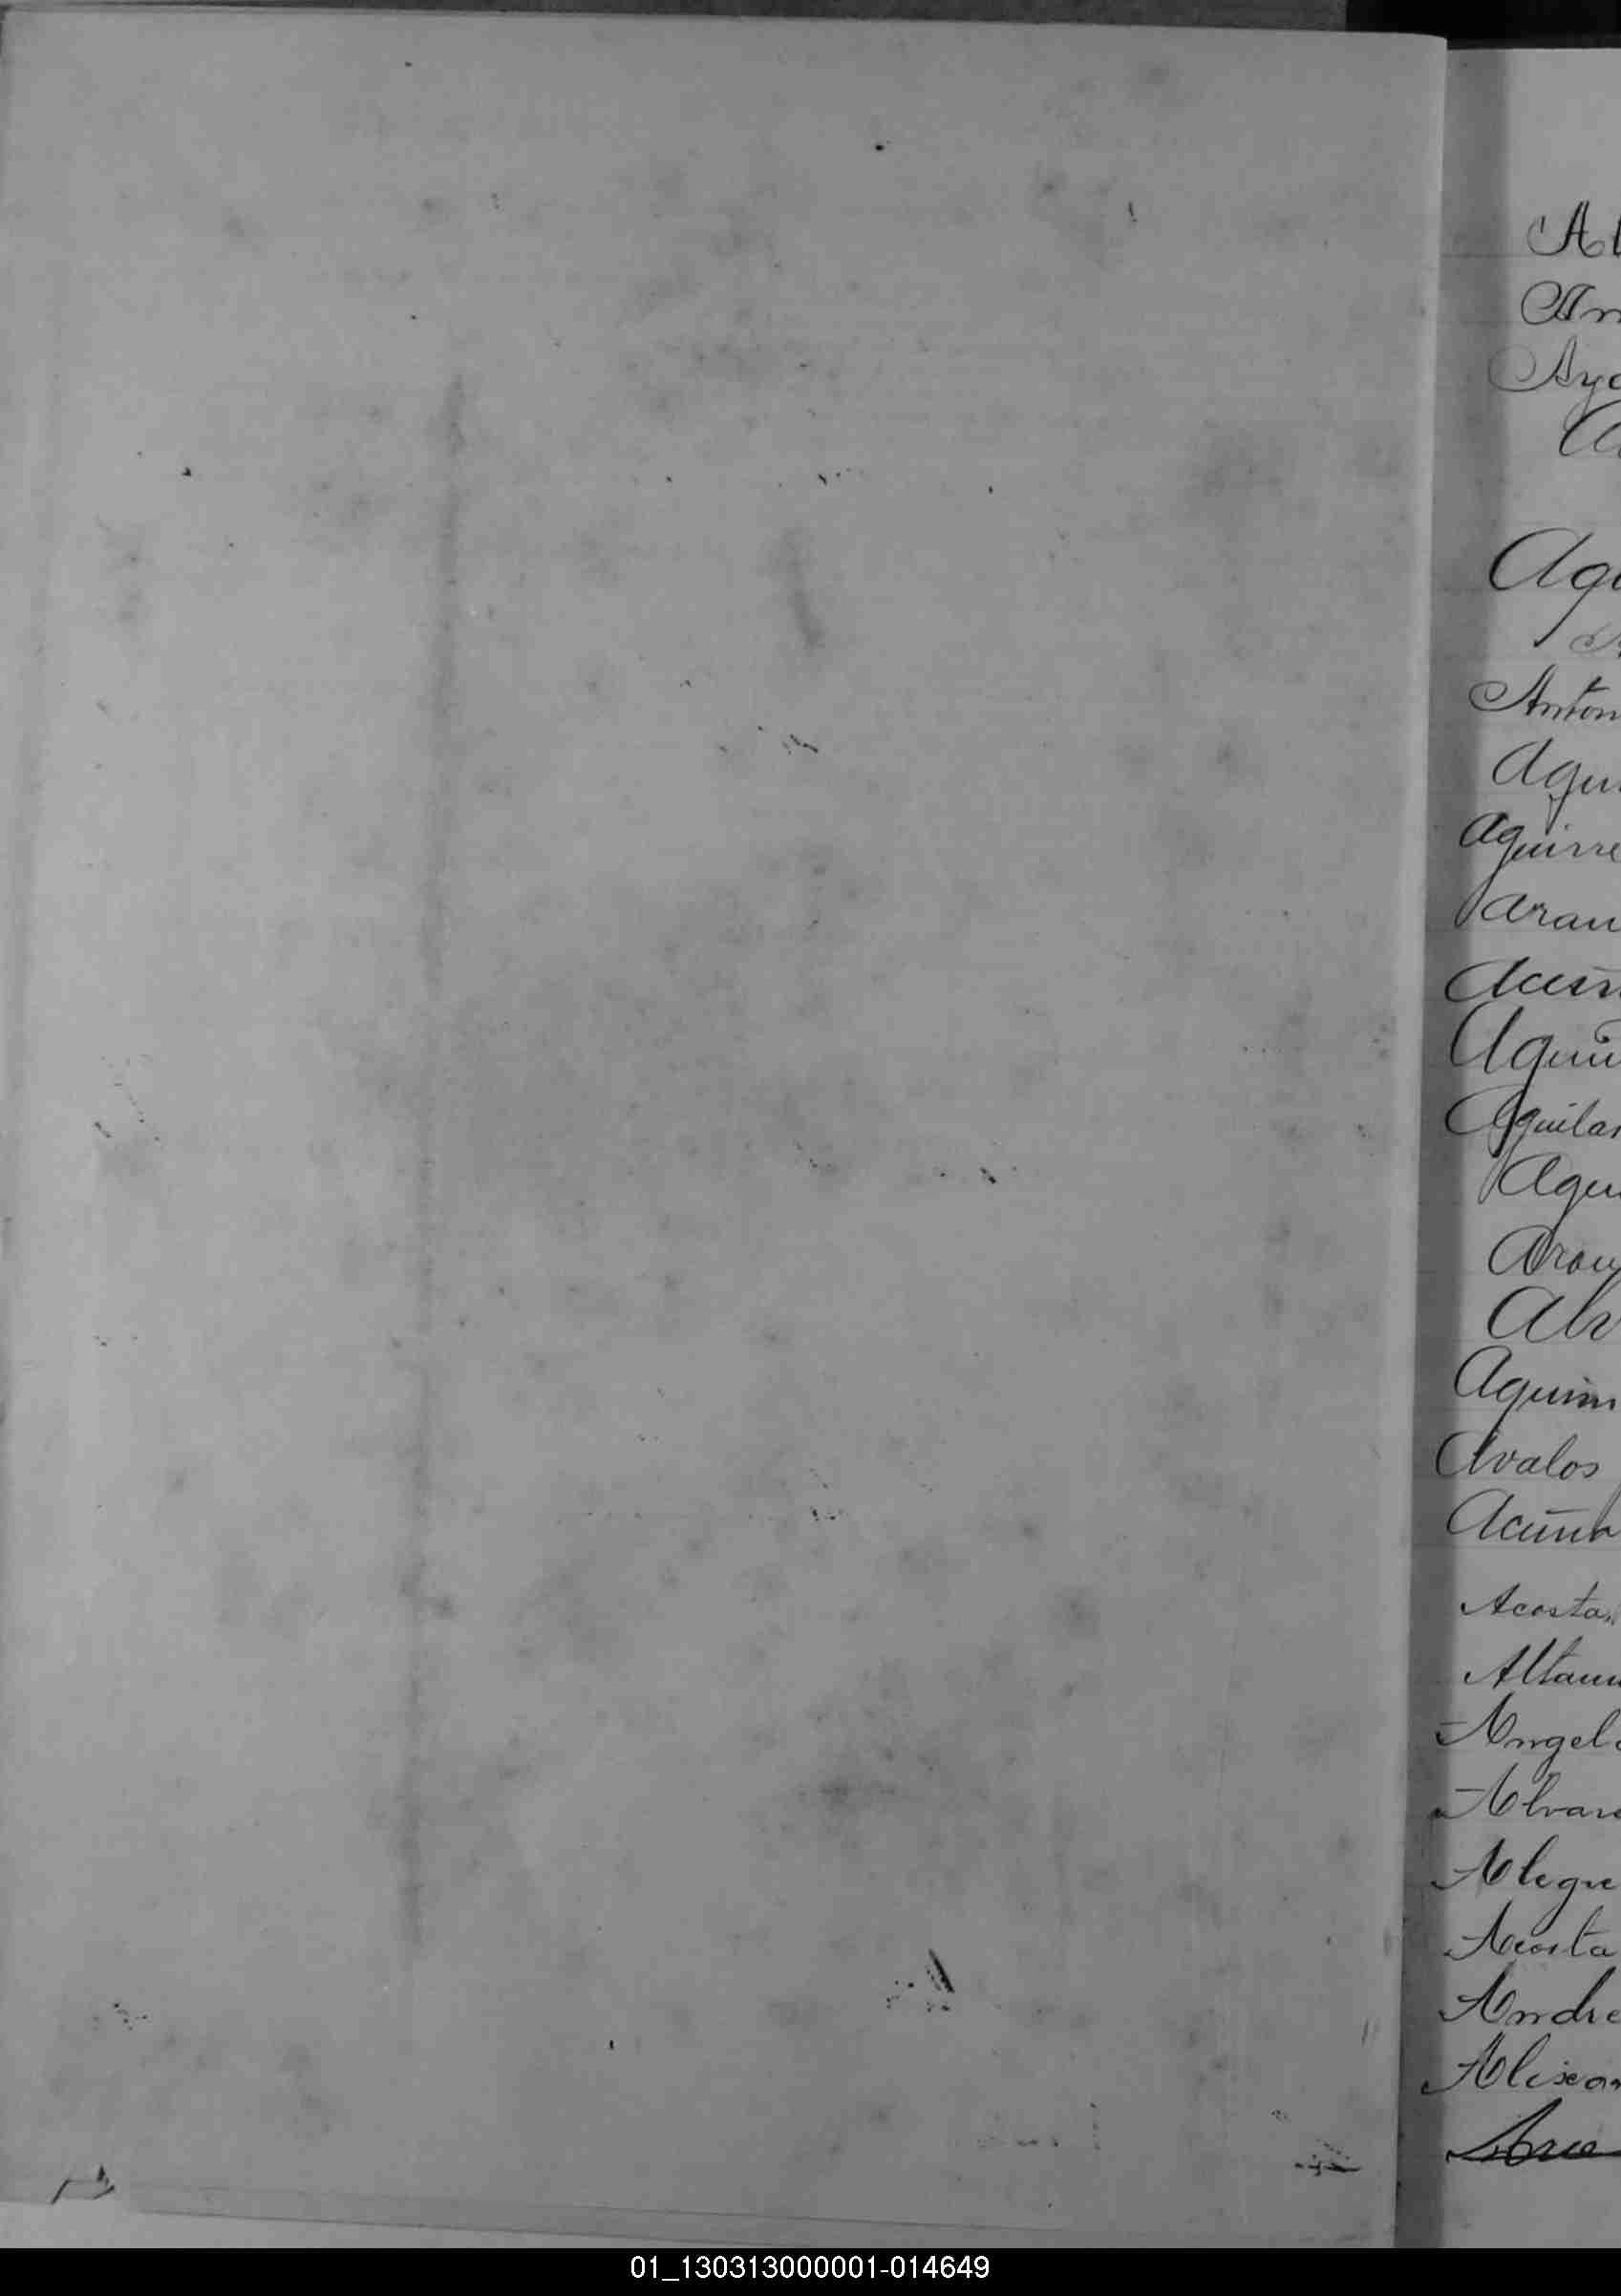 Al
Am
Aya
A
Agu
Anton
Agui
Aguirre
Arau
Acuñ
Aguil
Aguilar
Agui
Arau
Alv
Aguirr
Avalos
Acuña
Acosta
Altami
Angel
Alvare
Alegre
Acosta
Andre
Arce
01_130313000001-014649